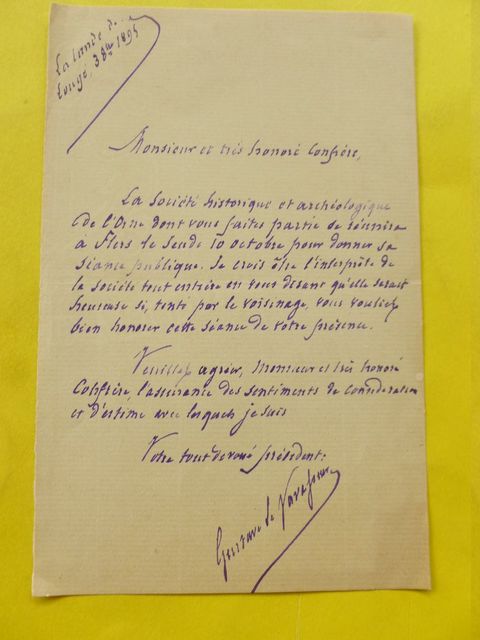 La Lande de
Lougé, 3 8bre 1895
Monsieur et très honoré Confrère,
La Société historique et archéologique
de l'Orne dont vous faites partie se réunira
à Flers le jeudi 10 octobre pour donner sa
séance publique. Je crois être l'interprète de
la société tout entière en vous disant qu'elle serait
heureuse si, tenté par le voisinage, vous vouliez
bien honorer cette séance de votre présence.
Veuillez agréer, Monsieur et très honoré
Confrère, l'assurance des sentiments de considération
et d'estime avec lesquels je suis
Votre tout dévoué président.
Gustave Le Vavasseur